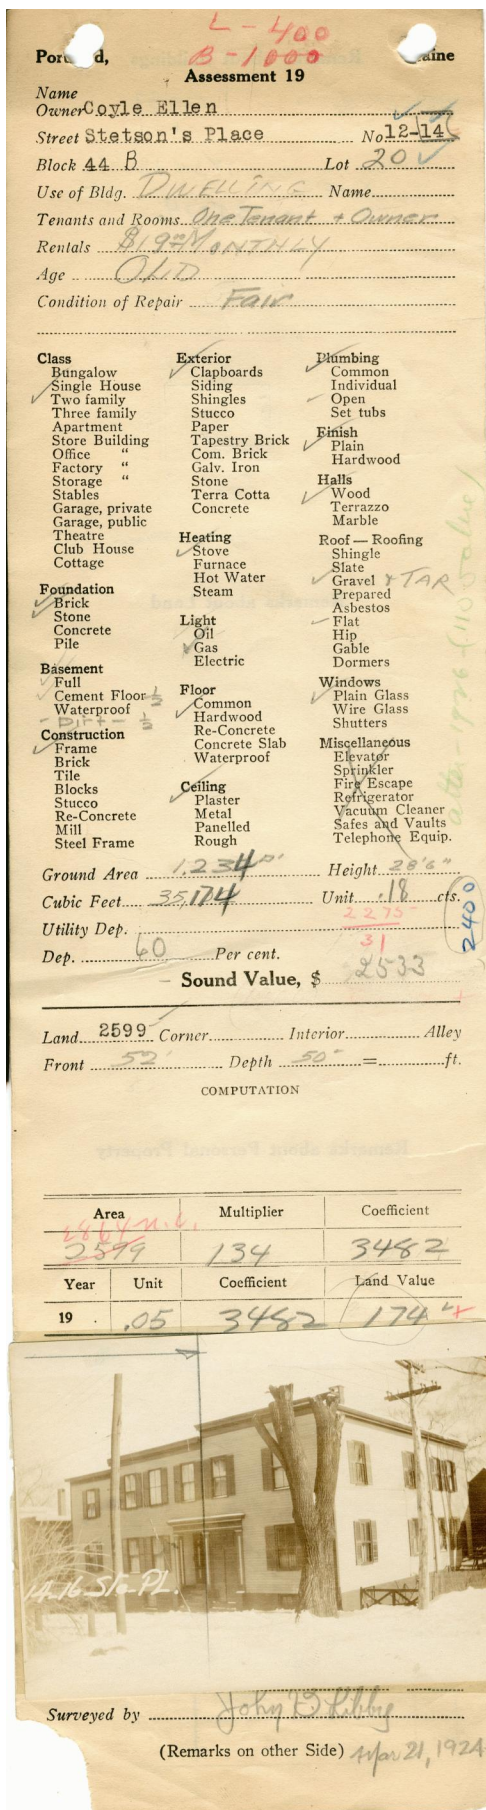 L - 400
B - 1000
Assessment 19
Name
Owner Coyle Ellen
Street Stetson's Place No 12-14
Block 44 B Lot 20
Use of Bldg. DWELLING Name
Tenants and Rooms One Tenant + Owner
Rentals $19.00 MONTHLY
Age OLD
Condition of Repair Fair
Class
Bungalow
Single House
Two family
Three family
Apartment
Store Building
Office "
Factory "
Storage "
Stables
Garage, private
Garage, public
Theatre
Club House
Cottage
Foundation
Brick
Stone
Concrete
Pile
Basement
Full
Cement Floor ½
Waterproof
- Dirt - ½
Construction
Frame
Brick
Tile
Blocks
Stucco
Re-Concrete
Mill
Steel Frame
Exterior
Clapboards
Siding
Shingles
Stucco
Paper
Tapestry Brick
Com. Brick
Galv. Iron
Stone
Terra Cotta
Concrete
Heating
Stove
Furnace
Hot Water
Steam
Light
Oil
Gas
Electric
Floor
Common
Hardwood
Re-Concrete
Concrete Slab
Waterproof
Ceiling
Plaster
Metal
Panelled
Rough
Plumbing
Common
Individual
Open
Set tubs
Finish
Plain
Hardwood
Halls
Wood
Terrazzo
Marble
Roof — Roofing
Shingle
Slate
Gravel & TAR
Prepared
Asbestos
Flat
Hip
Gable
Dormers
Windows
Plain Glass
Wire Glass
Shutters
Miscellaneous
Elevator
Sprinkler
Fire Escape
Refrigerator
Vacuum Cleaner
Safes and Vaults
Telephone Equip.
Ground Area 1,234 Height 28'6"
Cubic Feet 35,174 Unit .18 cts.
2275
Utility Dep.
31
2400
Dep. 60 Per cent.
Sound Value, $ 2533
Land 2599 Corner Interior Alley
Front 52' Depth 50 = ft.
COMPUTATION
Area Multiplier Coefficient
2599 134 3482
Year Unit Coefficient Land Value
19 .05 3482 174
14-16 Ste. PL.
Surveyed by John B Libby
(Remarks on other Side) Apr 21, 1924